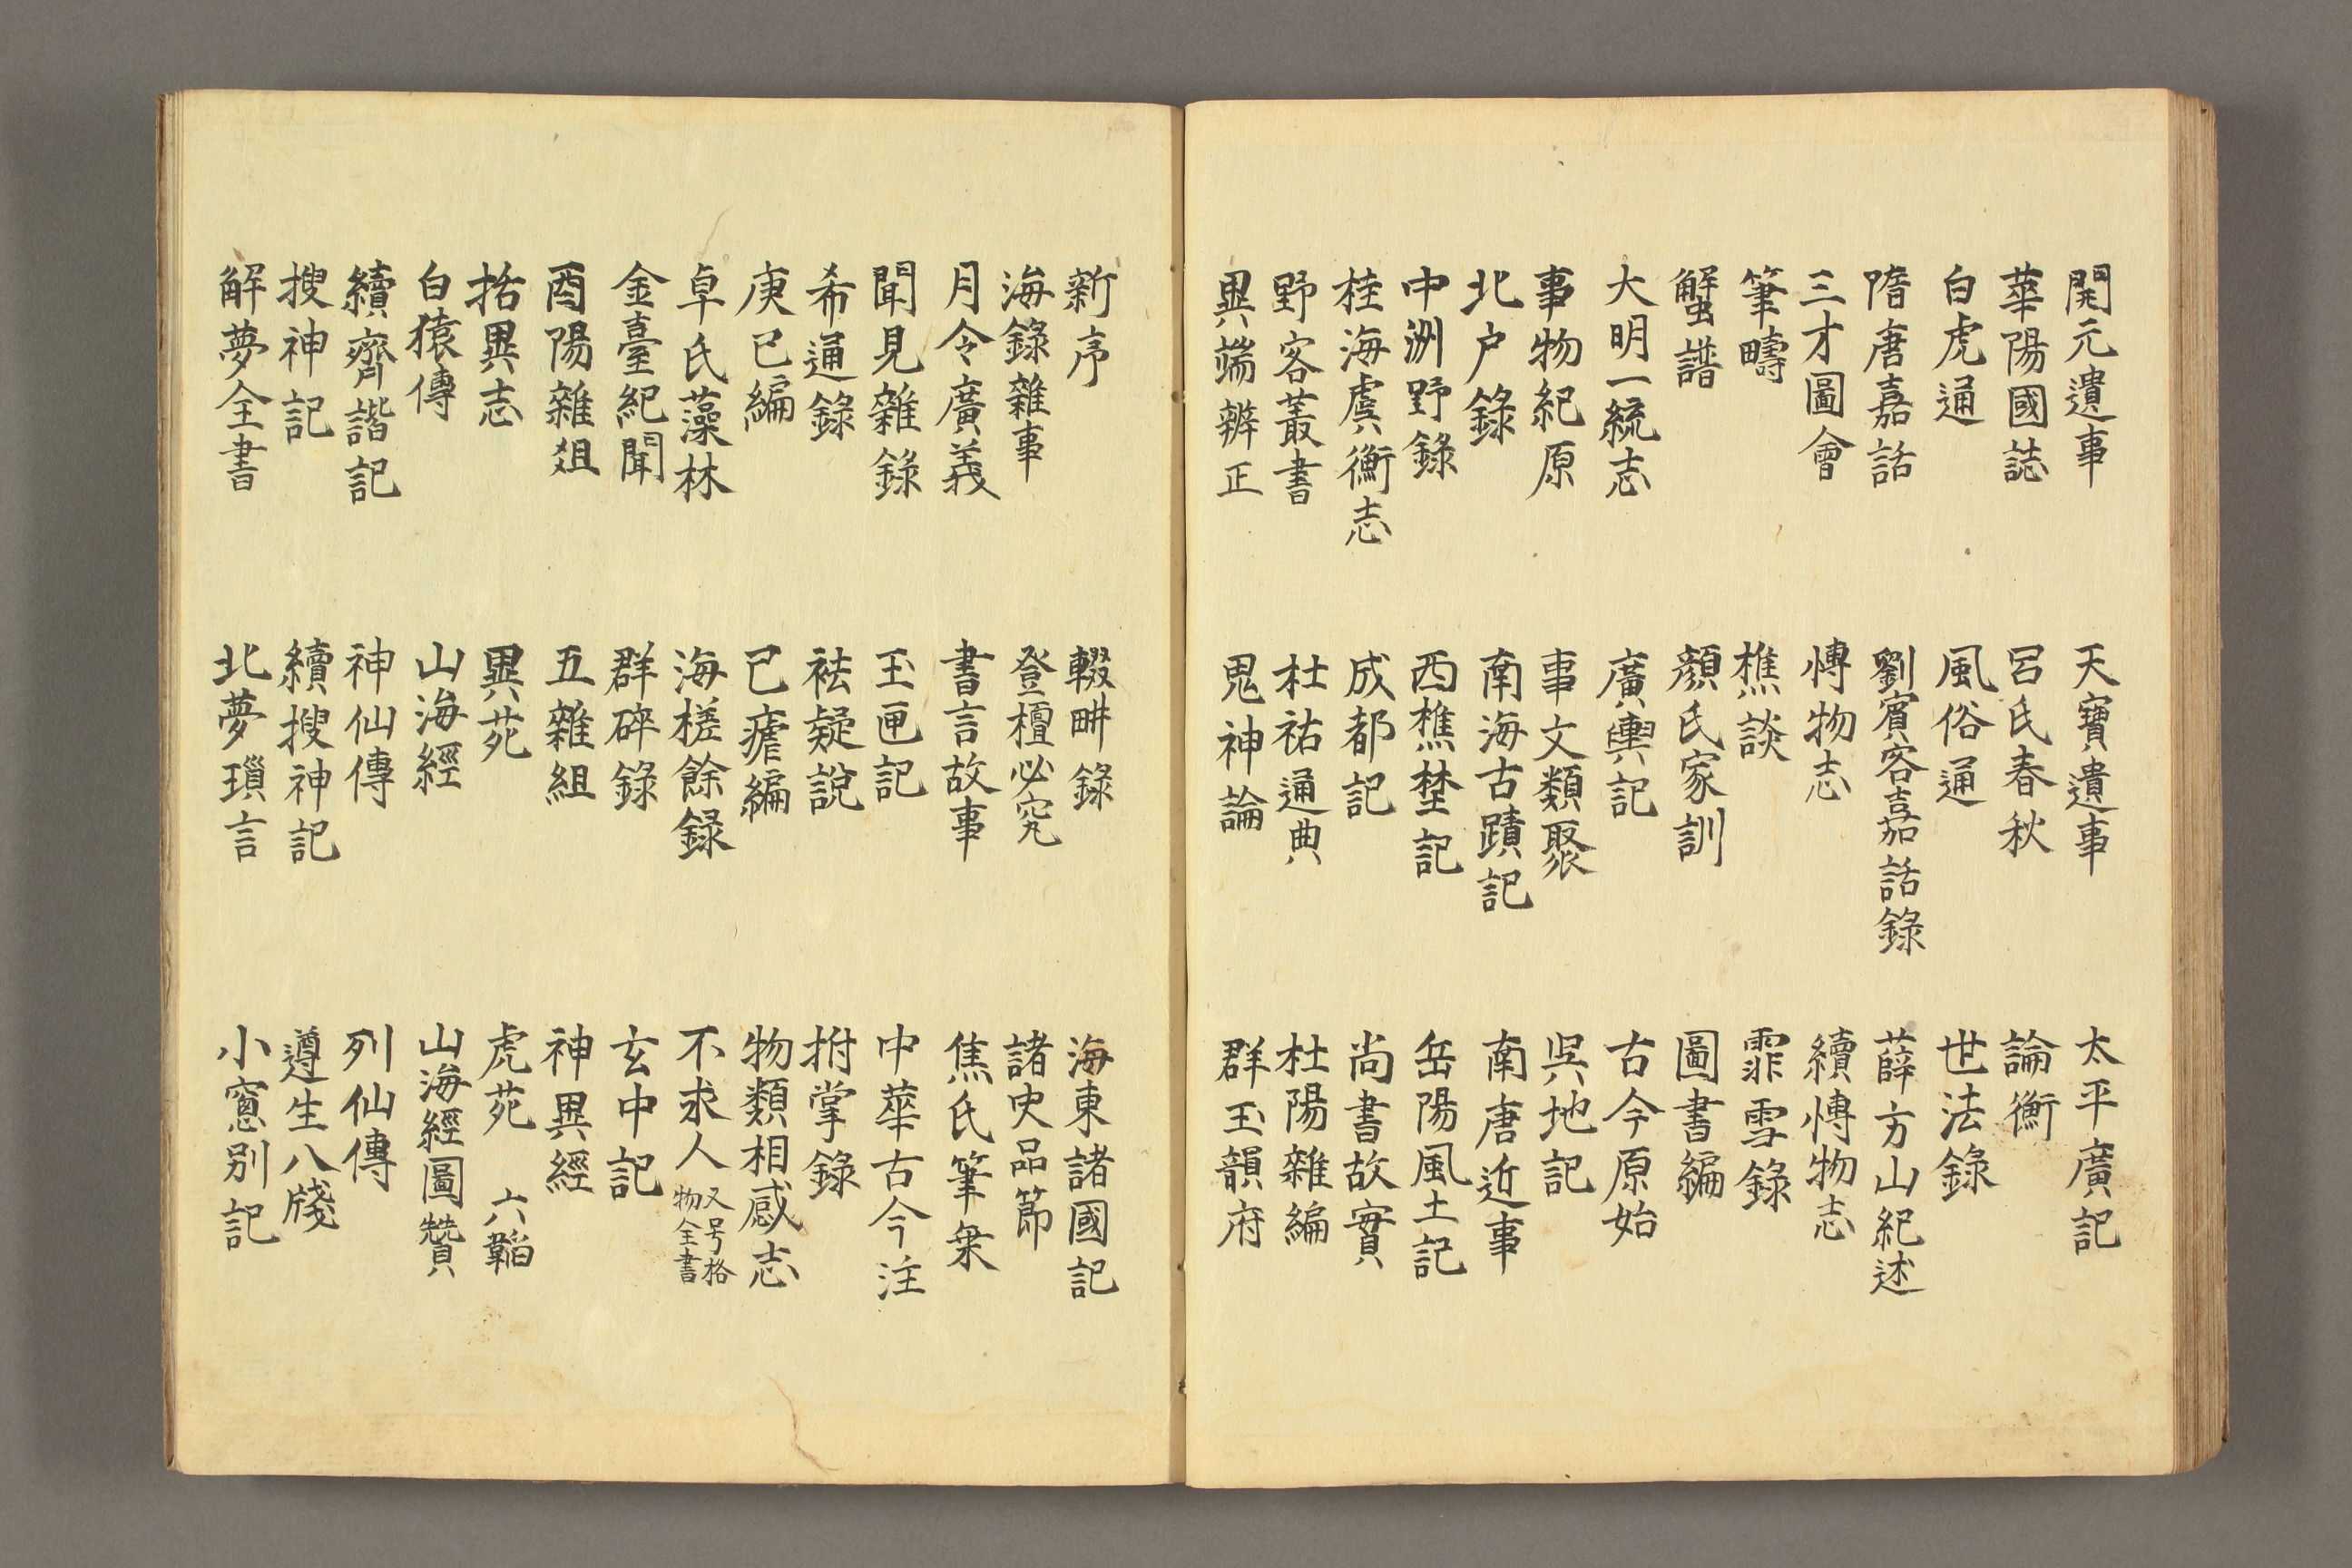 開元遺事　天寶遺事　太平廣記
華陽國誌　呂氏春秋　論衡
白虎通　風俗通　世法錄
隋唐嘉話　劉賓客嘉話錄　薛方山紀述
三才圖會　博物志　續博物志
筆疇　樵談　霏雪錄
蟹譜　顏氏家訓　圖書編
大明一統志　廣輿記　古今原始
事物紀原　事文類聚　吳地記
北户錄　南海古蹟記　南唐近事
中洲野錄　西樵埜記　岳陽風土記
桂海虞衡志　成都記　尚書故實
野客叢書　杜祐通典　杜陽雜編
異端辨正　鬼神論　群玉韻府
新序　輟畊錄　海東諸國記
海錄雜事　登檀必究　諸史品節
月令廣義　書言故事　焦氏筆乘
聞見雜錄　玉匣記　中華古今注
希通錄　袪疑說　拊掌錄
庚已編　已瘧編　物類相感志
卓氏藻林　海槎餘録　不求人 又号格物全書
金臺紀聞　群碎錄　玄中記
酉陽雜俎　五雜組　神異經
括異志　異苑　虎苑　六韜
白猿傳　山海經　山海經圖贊
續齊諧記　神仙傳　列仙傳
搜神記　續搜神記　遵生八牋
解夢全書　北夢瑣言　小窻別記